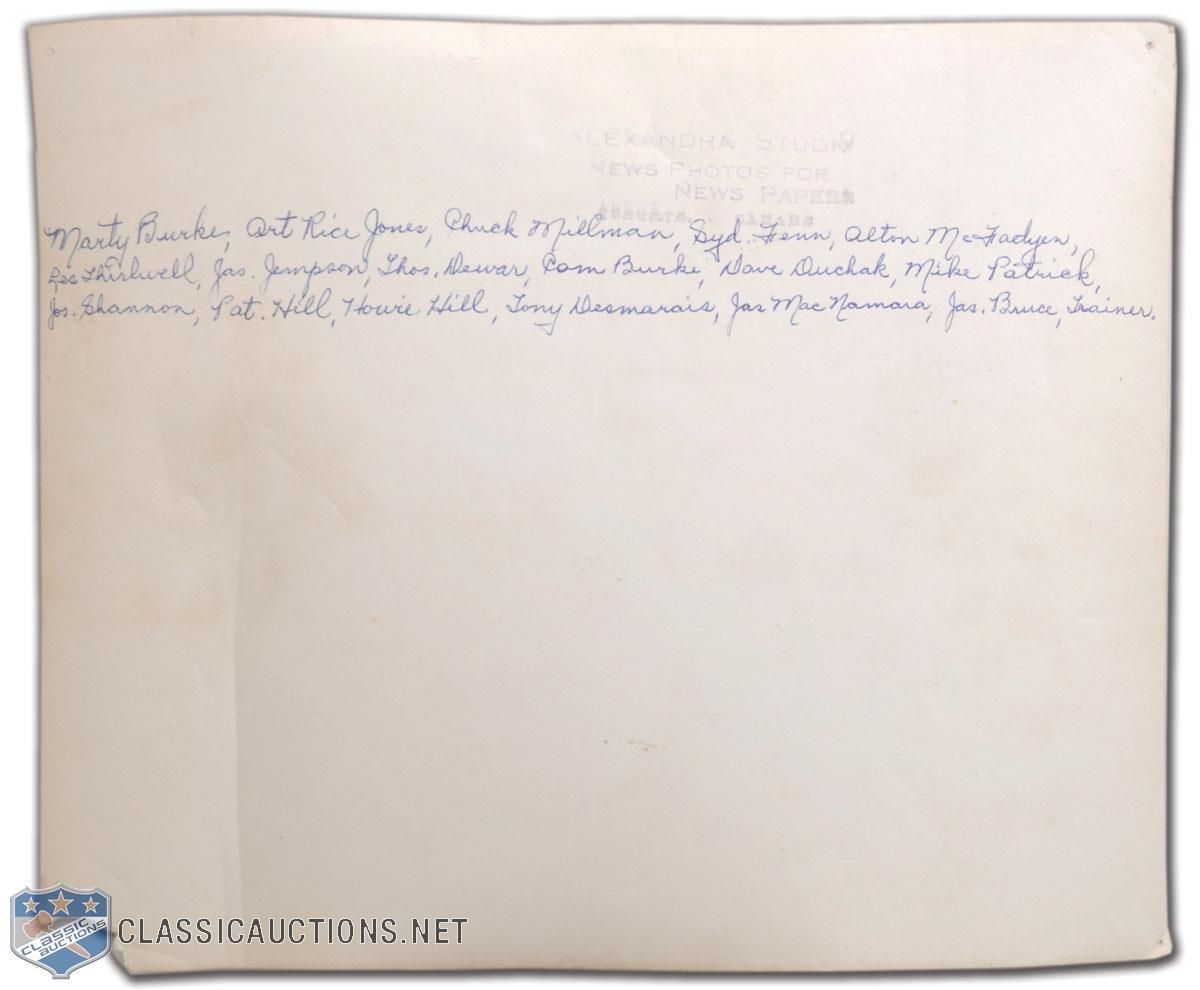 ALEXANDRA STUDIO
NEWS PHOTOS FOR
NEWS PAPERS
TORONTO, CANADA
Marty Burke, Art Rice Jones, Chuck Millman, Syd. Fenn, Alton McFadyen,
Les Thirlwell, Jas. Jempson, Thos. Dewar, Com Burke, Dave Duchak, Mike Patrick,
Jos. Shannon, Pat. Hill, Howie Hill, Tony Desmarais, Jas MacNamara, Jas. Bruce, Trainer.
CLASSIC
AUCTIONS
CLASSICAUCTIONS.NET